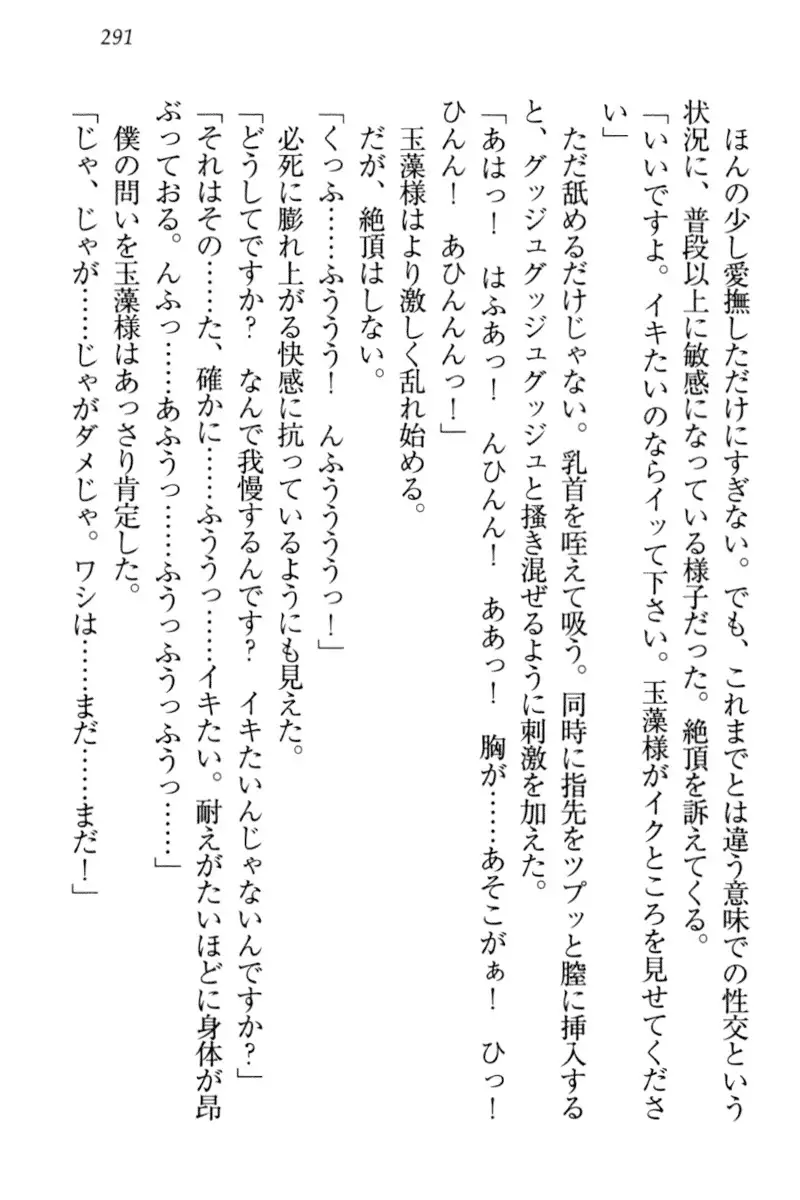 291
ほんの少し愛撫しただけにすぎない。でも、これまでとは違う意味での性交という
状況に、普段以上に敏感になっている様子だった。絶頂を訴えてくる。
「いいですよ。イキたいのならイッて下さい。玉藻様がイクところを見せてくださ
い」
ただ舐めるだけじゃない。乳首を咥えて吸う。同時に指先をツプッと膣に挿入する
と、グッジュグッジュグッジュと掻き混ぜるように刺激を加えた。
「あはっ！　はふあっ！　んひんん！　ああっ！　胸が……あそこがぁ！　ひっ！
ひんん！　あひんんんっ！」
玉藻様はより激しく乱れ始める。
だが、絶頂はしない。
「くっふ……ふううう！　んふうううううっ！」
必死に膨れ上がる快感に抗っているようにも見えた。
「どうしてですか？　なんで我慢するんです？　イキたいんじゃないんですか？」
「それはその……た、確かに……ふううっ……イキたい。耐えがたいほどに身体が昂
ぶっておる。んふっ……あふうっ……ふうっふうっふうっ……」
僕の問いを玉藻様はあっさり肯定した。
「じゃ、じゃが……じゃがダメじゃ。ワシは……まだ……まだ！」